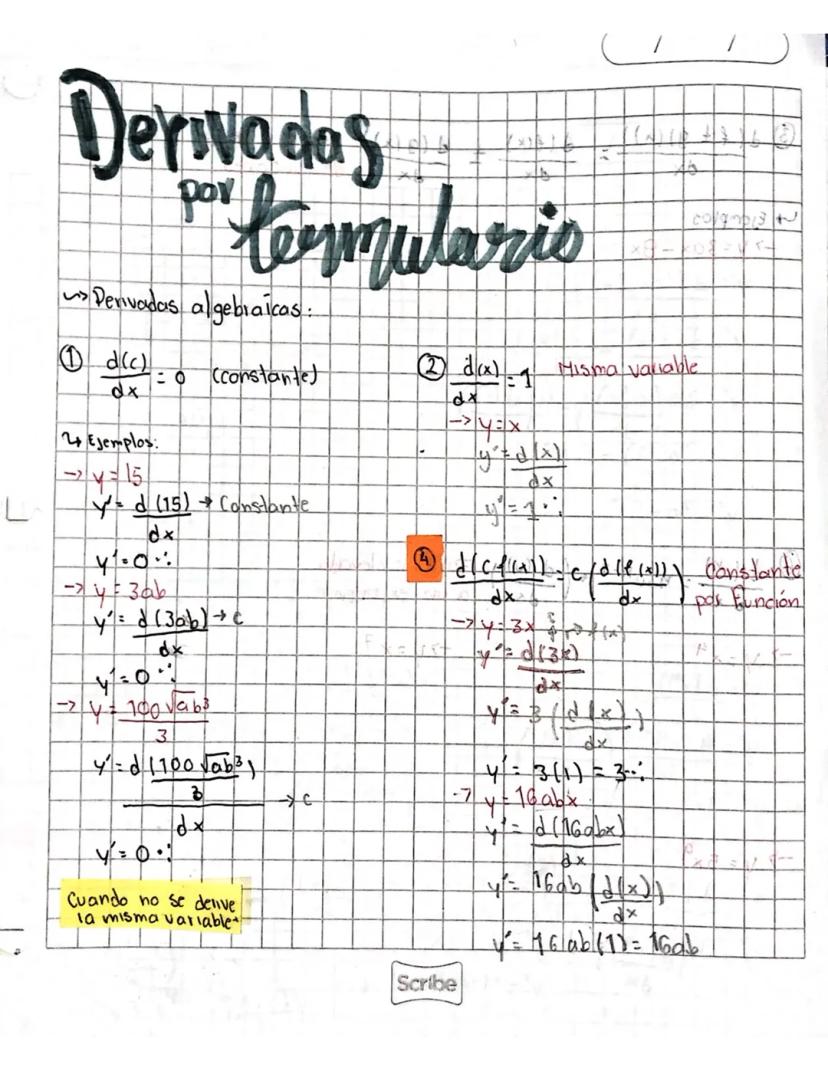 Derivadas
por
formulario
↝ Derivadas algebraicas:
① d(c)/dx = 0 (constante)
↳ Ejemplos:
→ y = 15
y' = d(15)/dx → Constante
y' = 0 ∴
→ y = 3ab
y' = d(3ab)/dx → c
y' = 0 ∴
→ y = 100√ab³/3
y' = d(100√ab³/3)/dx → c
y' = 0 ∴
Cuando no se derive
la misma variable
② d(x)/dx = 1 Misma variable
→ y = x
y' = d(x)/dx
y' = 1 ∴
④ d(c f(x))/dx = c(d(f(x))/dx) Constante
por función
→ y = 3x → f(x)
y' = d(3x)/dx
y' = 3(d(x)/dx)
y' = 3(1) = 3 ∴
→ y = 16abx
y' = d(16abx)/dx
y' = 16ab(d(x)/dx)
y' = 16ab(1) = 16ab
Scribe